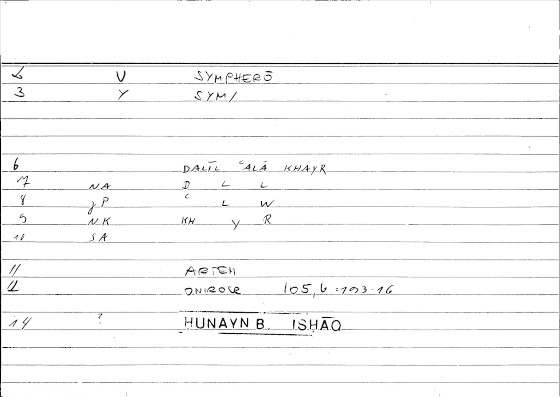 2 V SYMPHERŌ
3 Y SYM/
6 DALĪL ʿALĀ KHAYR
7 NA D L L
8 JP ʿ L W
9 NK KH Y R
10 SA
11 ARTEM
12 ONIROCR 105,6 = 193.16
14 ? HUNAYN B. ISHĀQ